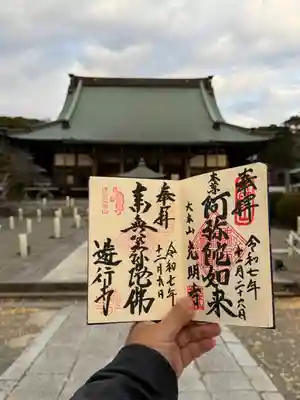 奉拝
令和七年十二月二十六日
本尊
阿弥陀如来
大本山 光明寺
奉拝
令和七年
南無阿弥陀佛
遊行寺